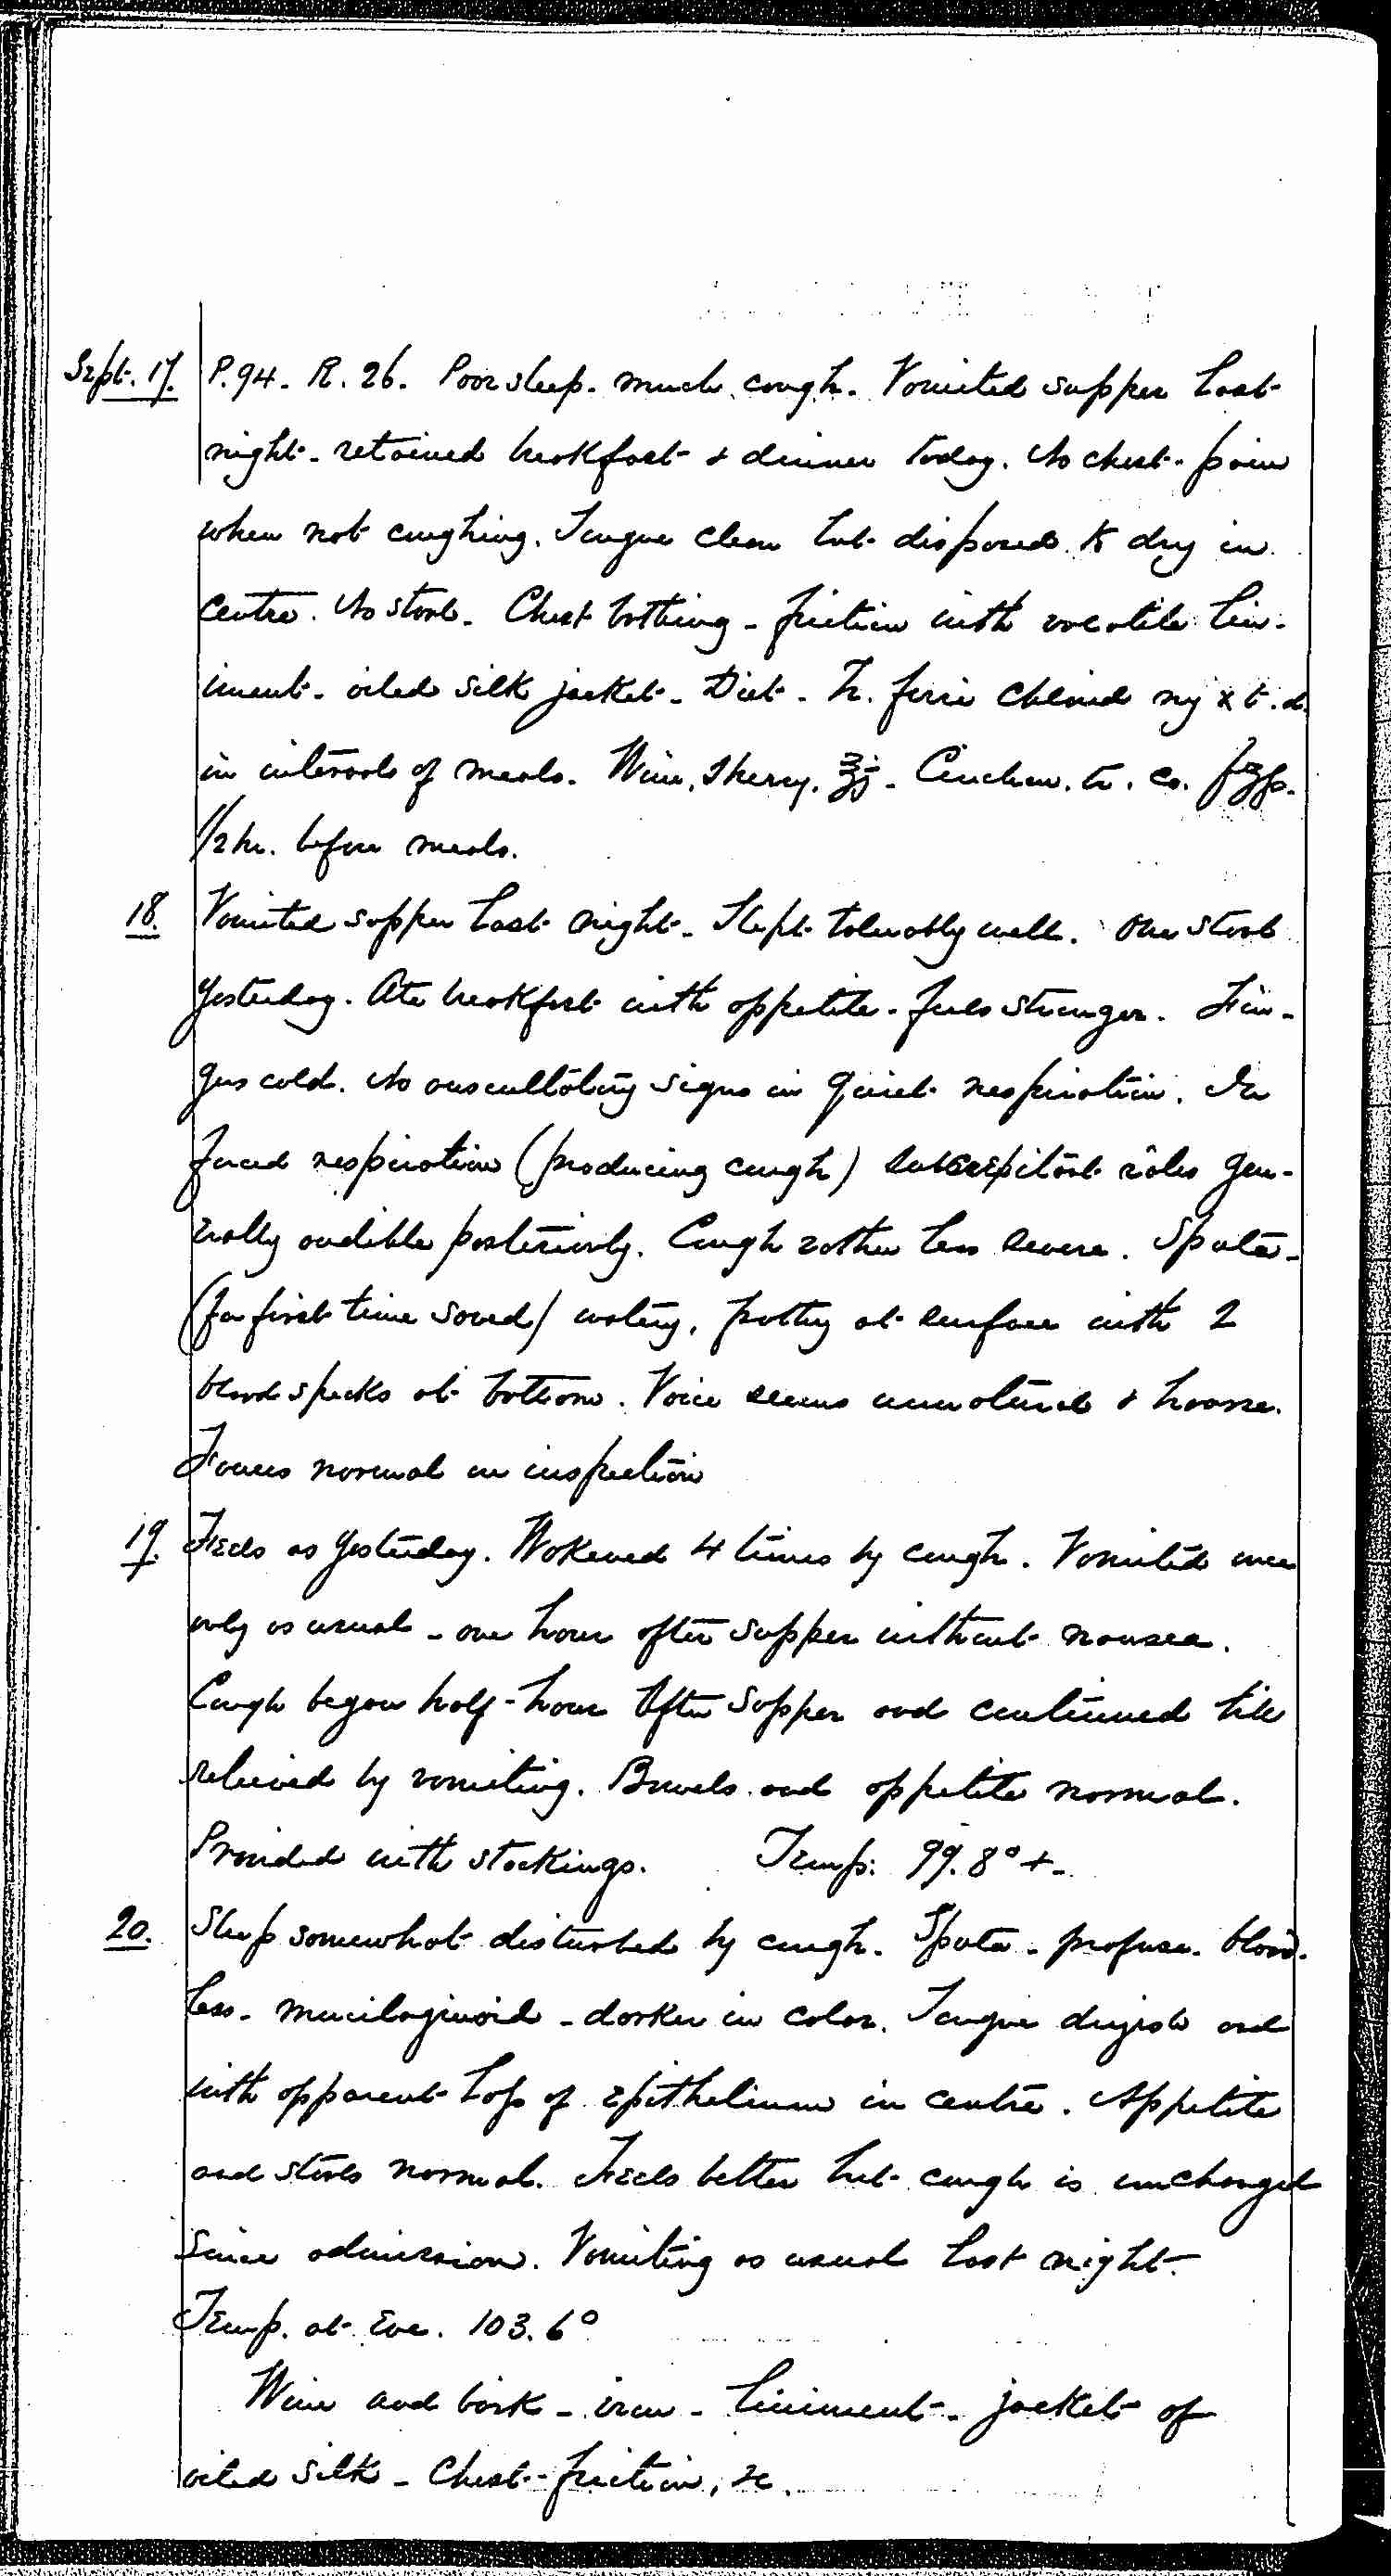 Sept. 17. P. 94. R. 26. Poor sleep. much cough. Vomited supper last
night - retained breakfast & dinner today. No chest-pain
when not coughing. Tongue clean but disposed to dry in
centre. No stool. Chest bathing - friction with volatile lin-
iment - oiled silk jacket - Diet - Tr. ferri chlorid x t. d.
in intervals of meals. Wine, Sherry, ℥j - Cinchon. tr. co.
1/2 hr. before meals.
18. Vomited supper last night. Slept tolerably well. One stool
yesterday. Ate breakfast with appetite - feels stronger. Fin-
gers cold. No auscultatory signs in quiet respiration. In
forced respiration (producing cough) subcrepitant râles gen-
erally audible posteriorly. Cough rather less severe. Sputa -
(for first time saved) watery, frothy at surface with 2
blood specks at bottom. Voice seems unnatural & hoarse.
Fauces normal on inspection
19. Feels as yesterday. Wakened 4 times by cough. Vomited once
only as usual - one hour after supper without nausea.
Cough began half-hour after supper and continued till
relieved by vomiting. Bowels and appetite normal.
Provided with stockings. Temp: 99.8° +-
20. Sleep somewhat disturbed by cough. Sputa - profuse. blood-
less - mucilaginoid - darker in color. Tongue dryish and
with apparent loss of epithelium in centre. Appetite
and stools normal. Feels better but cough is unchanged
since admission. Vomiting as usual last night.
Temp. at Eve. 103.6°
Wine and bark - iron - liniment - jacket of
oiled silk - Chest-friction, &c.